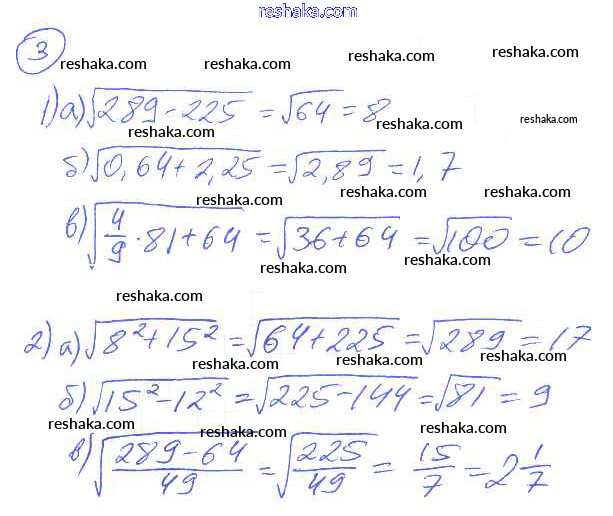 reshaka.com
3
reshaka.com reshaka.com reshaka.com
1) а) √(289 - 225) = √64 = 8
reshaka.com reshaka.com reshaka.com
б) √(0,64 + 2,25) = √2,89 = 1,7
reshaka.com reshaka.com reshaka.com
в) √(4/9 · 81 + 64) = √(36 + 64) = √100 = 10
reshaka.com reshaka.com
reshaka.com reshaka.com reshaka.com
2) а) √(8² + 15²) = √(64 + 225) = √289 = 17
reshaka.com reshaka.com reshaka.com
б) √(15² - 12²) = √(225 - 144) = √81 = 9
reshaka.com reshaka.com reshaka.com
в) √((289 - 64)/49) = √(225/49) = 15/7 = 2 1/7
reshaka.com reshaka.com reshaka.com